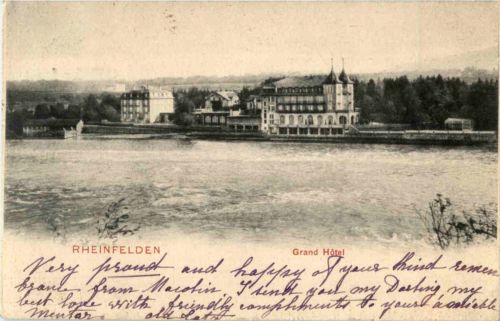 RHEINFELDEN
Grand Hôtel
Very proud and happy of your kind remem
brance from I send you my Darling my
but love with friendly compliments to your amiable
old